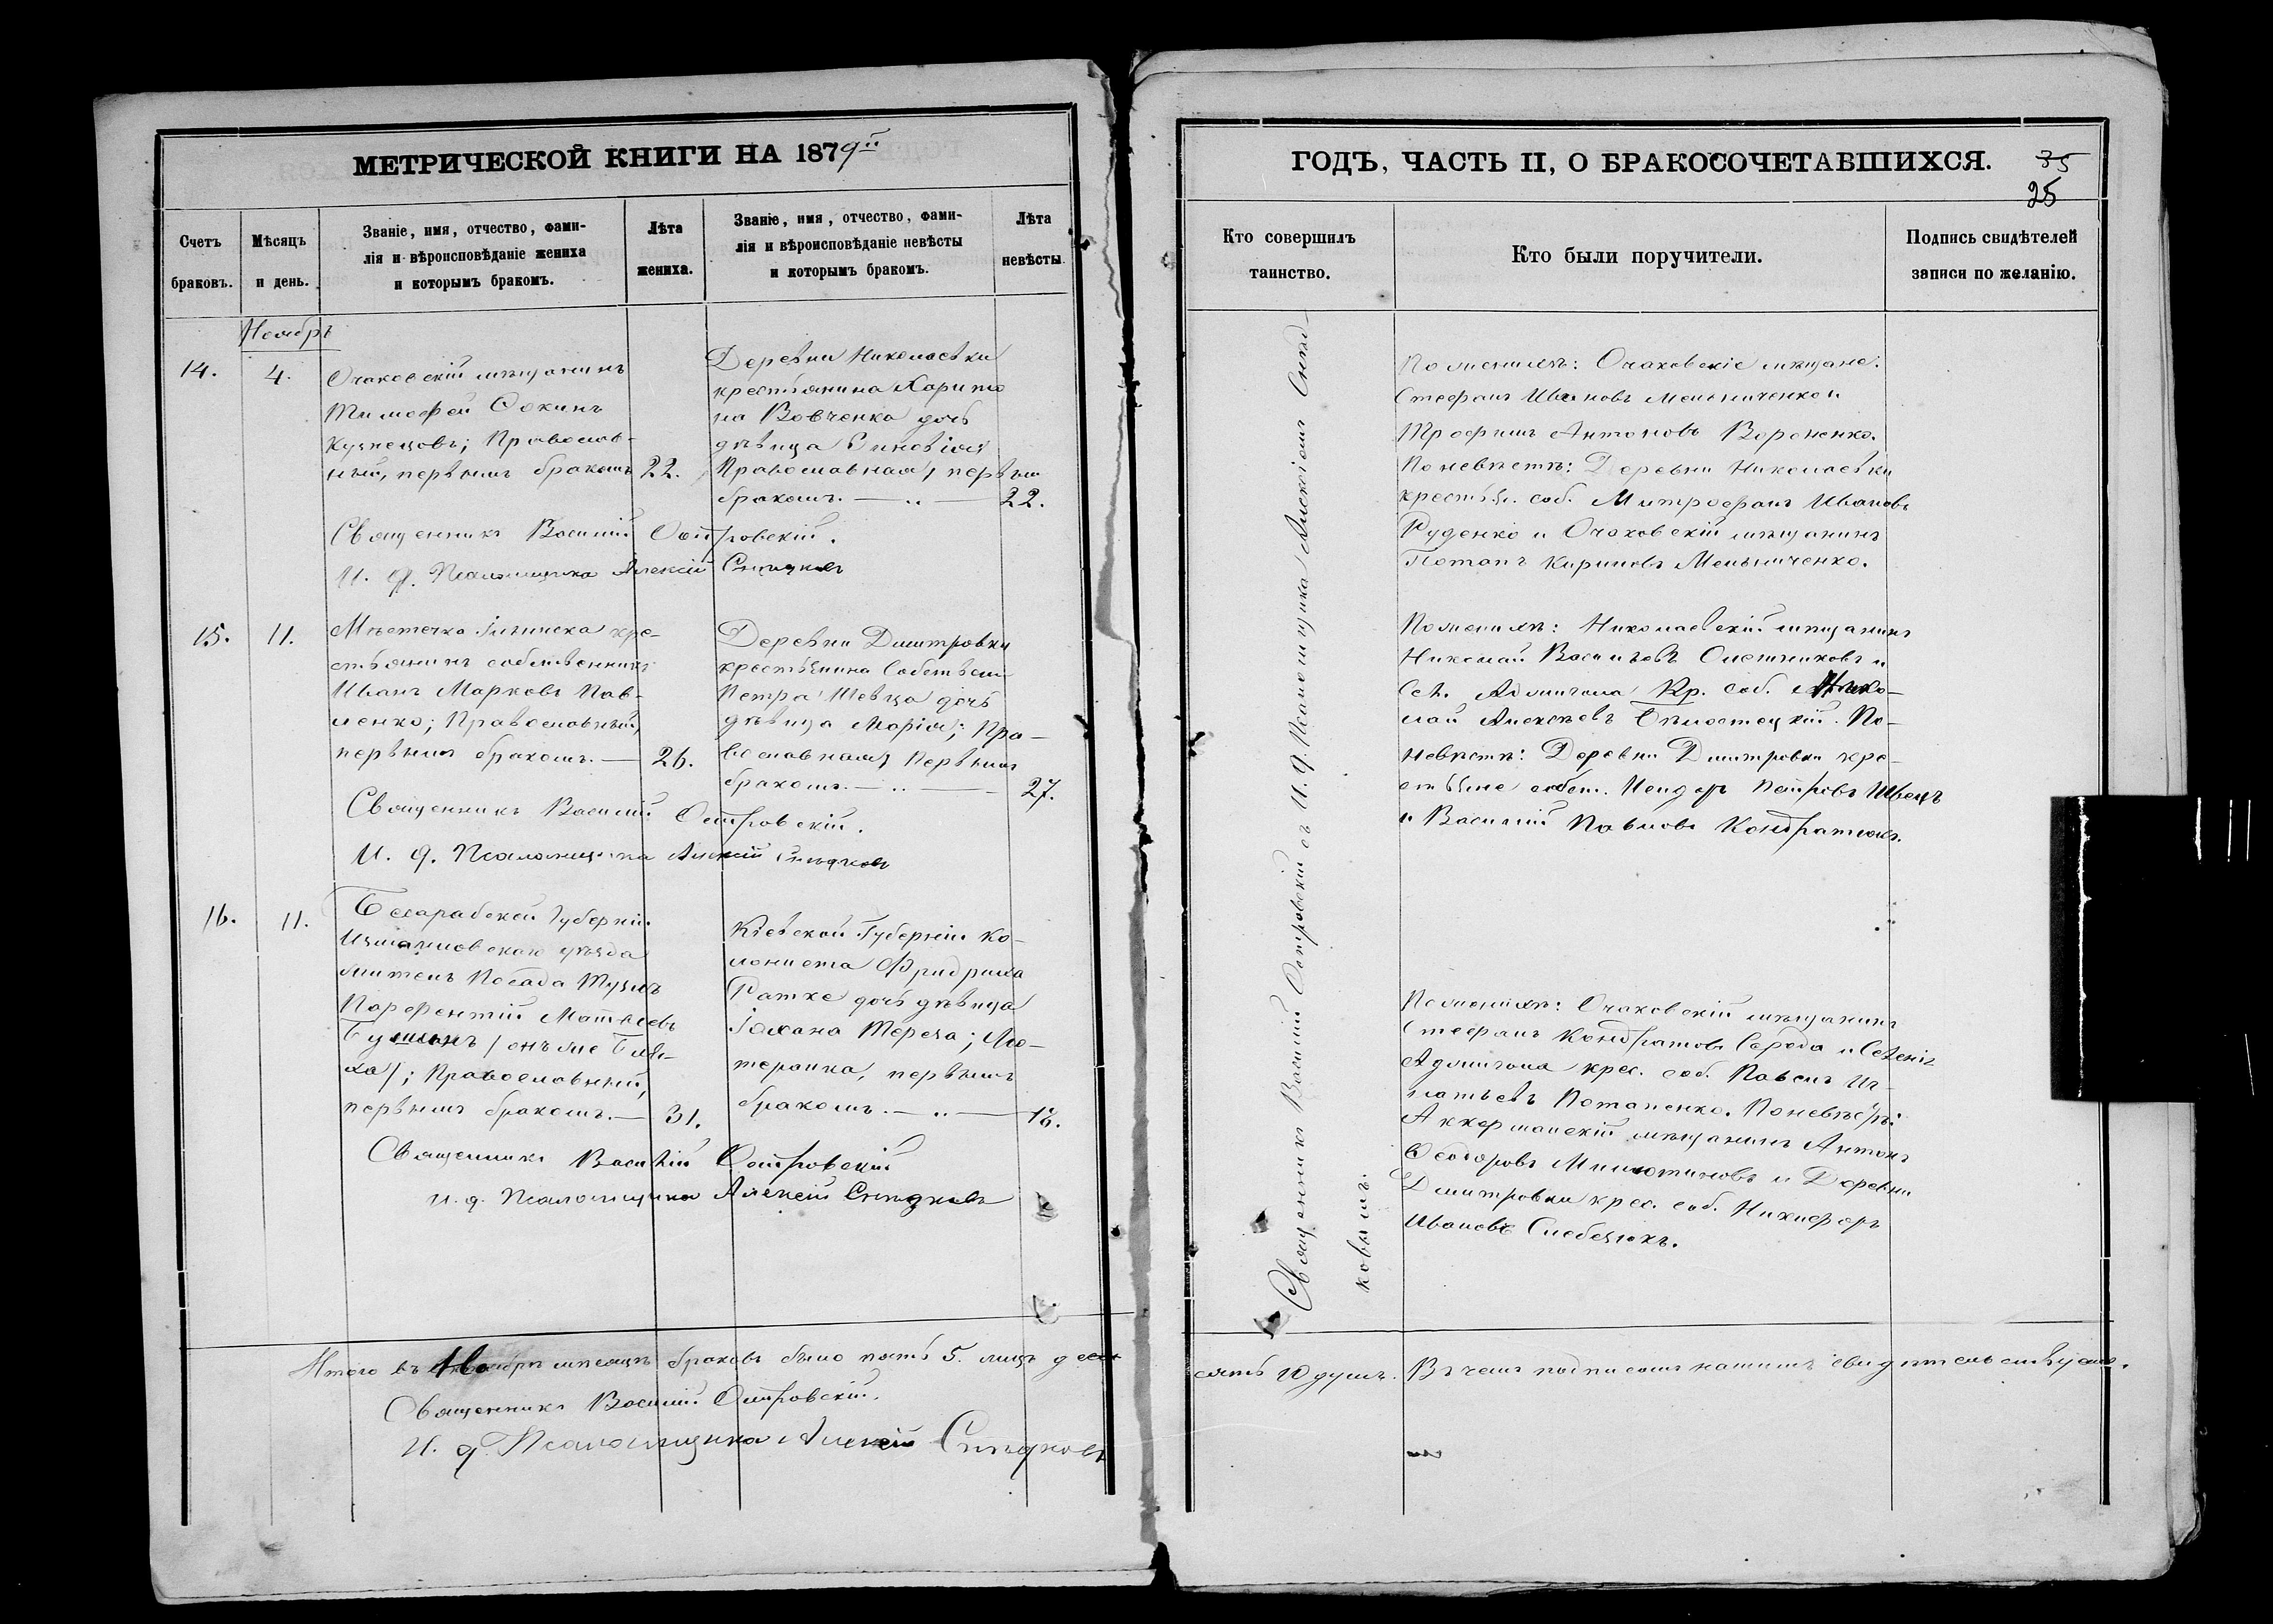 МЕТРИЧЕСКОЙ КНИГИ НА 1879й
Счетъ браковъ.
Мѣсяцъ и день.
Званіе, имя, отчество, фами-
лія и вѣроисповѣданіе жениха
и которымъ бракомъ.
Лѣта жениха.
Званіе, имя, отчество, фами-
лія и вѣроисповѣданіе невѣсты
и которымъ бракомъ.
Лѣта невѣсты
Ноябрь
14.
4.
Очаковскій мѣщанинъ
Тимофей
Кузнецовъ; Православ-
ный, первымъ бракомъ
22.
Деревни Николаевки
крестьянина Харито
на Вовченка дочь
дѣвица
Православная, первым
бракомъ.
22.
Священникъ Василій Островскій.
И. д. Псаломщика Алексій Снѣдковъ
15.
11.
Мѣстечка кре-
стьянинъ собственникъ
Иванъ Марковъ Пав-
ленко; Православный,
первымъ бракомъ.
26.
Деревни Дмитровки
крестьянина Собствен
Петра Шевца дочь
дѣвица Марія; Пра-
вославная, первымъ
бракомъ.
27.
Священникъ Василій Островскій.
И. д. Псаломщика Алексій Снѣдковъ
16.
11.
Бесарабской Губерніи
Измаиловскаго уѣзда
житель Посада Тузлъ
Парфентій Матвѣевъ
/онъ же
ха/; Православный,
первымъ бракомъ.
31.
Кіевской Губерніи ко-
лониста Фридриха
Ратке дочь дѣвица
Іохана Тереза; Лю-
теранка, первымъ
бракомъ.
18.
Священникъ Василій Островскій
и. д. Псаломщика Алексій Снѣдковъ
Итого въ Ноябрѣ мѣсяцѣ браковъ было пять 5. лицъ деся
Священникъ Василій Островскій.
И. д. Псаломщика Алексій Снѣдковъ
ГОДЪ, ЧАСТЬ II, О БРАКОСОЧЕТАВШИХСЯ.
35
25
Кто совершилъ таинство.
Кто были поручители.
Подпись свидѣтелей
записи по желанію.
Священникъ Василій Островскій съ И. д. Псаломщика Алексіемъ Снѣд-
ковымъ.
По женихѣ: Очаковскіе мѣщане:
Стефанъ Ивановъ Мельниченко и
Трофимъ Антоновъ Вороненко.
По невѣстѣ: Деревни Николаевки
крестья. соб. Митрофанъ Ивановъ
Руденко и Очаковскій мѣщанинъ
Потапъ Кириловъ Мельниченко.
По женихѣ: Николаевскій мѣщанинъ
Николай Васильевъ и
Сел. Аджигола Кр. соб. Нико-
лай Алексѣевъ Бѣлостоцкій. По
невѣстѣ: Деревни Дмитровки кре-
стьяне собст. Петровъ Швецъ
и Василій Павловъ Кондратюкъ.
По женихѣ: Очаковскій мѣщанинъ
Стефанъ Кондратовъ Середа и Селенія
Аджигола крес. соб. Павелъ Иг-
натьевъ Потапенко. По невѣстѣ:
Аккерманскій мѣщанинъ Антонъ
Ѳеодоровъ и Деревни
Дмитровки крес. соб. Никифоръ
Ивановъ Слободзюкъ.
сять 10 душъ. Въ чемъ подписомъ нашимъ свидѣтельствуемъ.